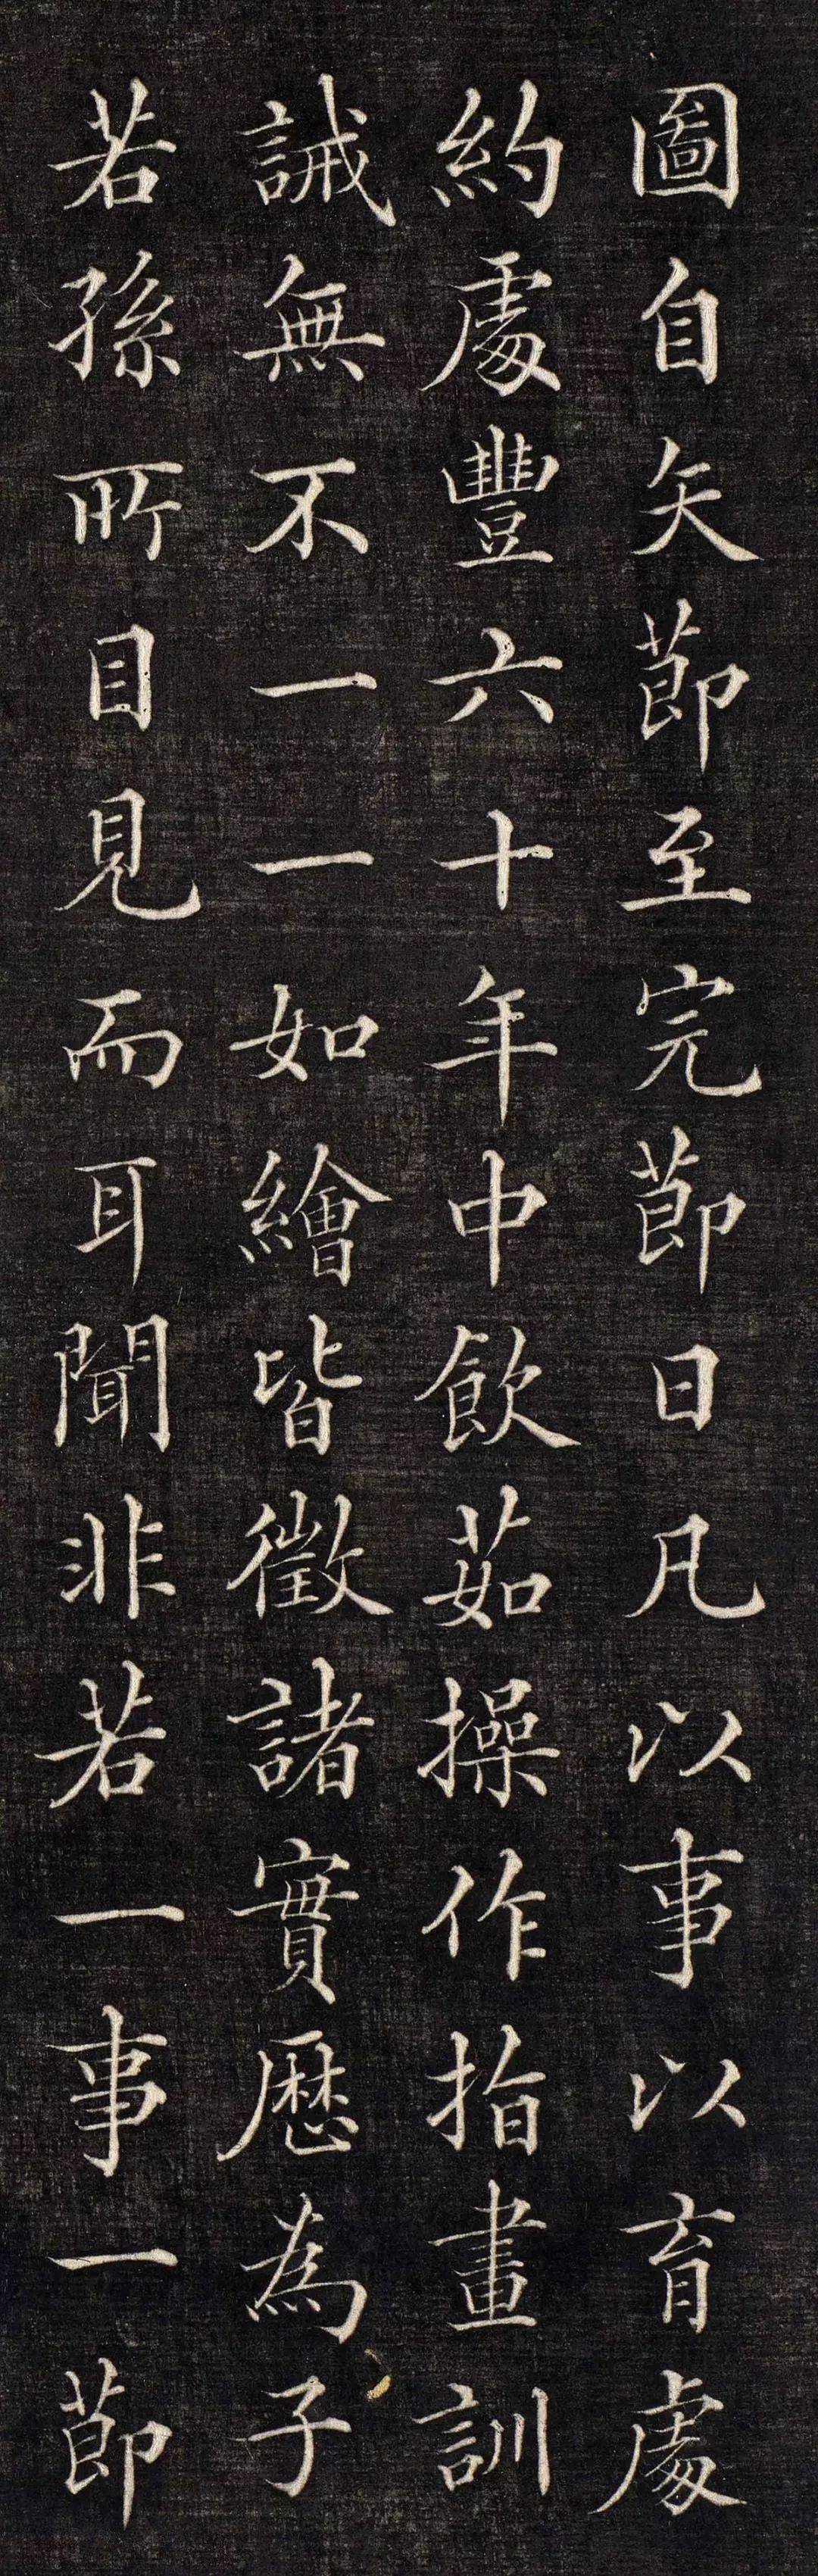 圖自矢節至完節日凡以事以育處
約處豐六十年中飲茹操作指畫訓
誡無不一一如繪皆徵諸實歷為子
若孫所目見而耳聞非若一事一節